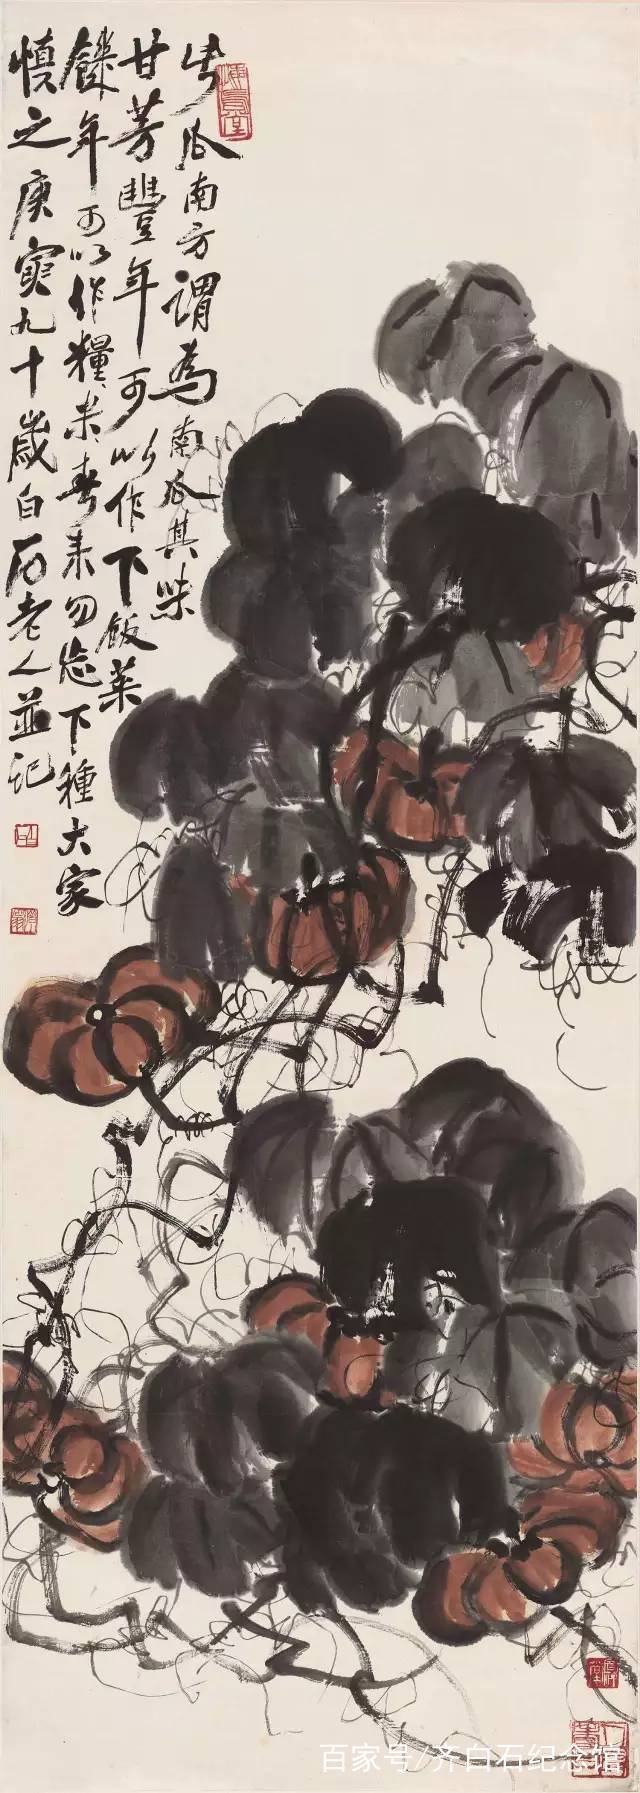 此瓜南方謂為南瓜其味
甘芳豐年可以作下飯菜
饑年可以作糧米春来勿忘下種大家
慎之庚寅九十歲白石老人並記
百家号/齐白石纪念馆